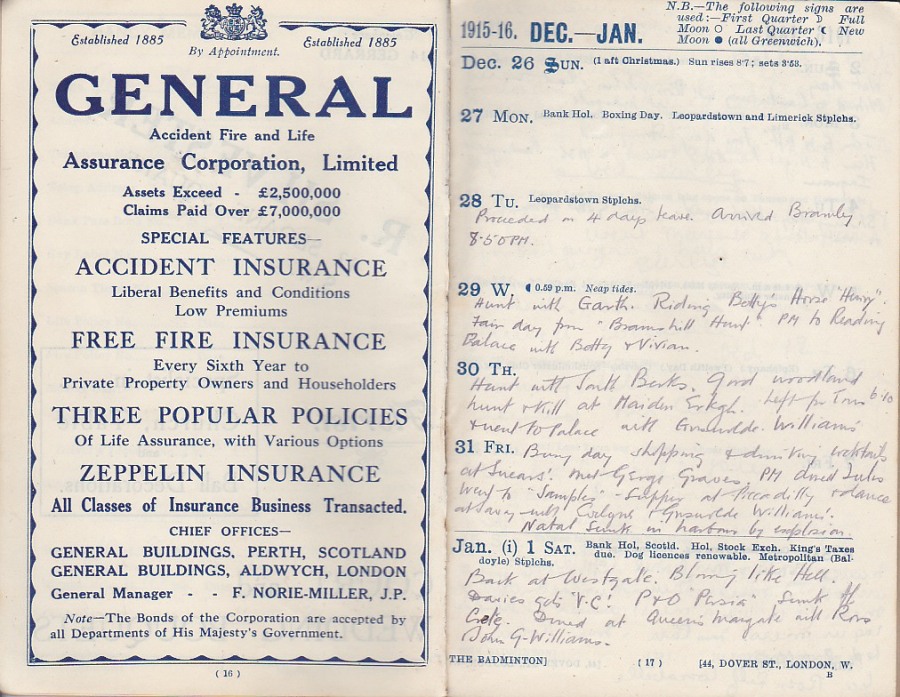 Established 1885
By Appointment.
Established 1885
GENERAL
Accident Fire and Life
Assurance Corporation, Limited
Assets Exceed - £2,500,000
Claims Paid Over £7,000,000
SPECIAL FEATURES—
ACCIDENT INSURANCE
Liberal Benefits and Conditions
Low Premiums
FREE FIRE INSURANCE
Every Sixth Year to
Private Property Owners and Householders
THREE POPULAR POLICIES
Of Life Assurance, with Various Options
ZEPPELIN INSURANCE
All Classes of Insurance Business Transacted.
CHIEF OFFICES—
GENERAL BUILDINGS, PERTH, SCOTLAND
GENERAL BUILDINGS, ALDWYCH, LONDON
General Manager - - F. NORIE-MILLER, J.P.
Note—The Bonds of the Corporation are accepted by
all Departments of His Majesty's Government.
( 16 )
N.B.—The following signs are
used:—First Quarter ☽ Full
Moon ○ Last Quarter ☾ New
Moon ● (all Greenwich).
1915-16. DEC.—JAN.
Dec. 26 SUN. (1 aft Christmas.) Sun rises 8·7; sets 3·58.
27 MON. Bank Hol. Boxing Day. Leopardstown and Limerick Stplchs.
28 TU. Leopardstown Stplchs.
Proceeded on 4 days leave. Arrived Bramley
8.50 PM.
29 W. ☾ 0.59 p.m. Neap tides.
Hunt with Garth. Riding Betty's Horse "Henry".
Fair day from "Bramshill Hunt". PM to Reading
Palace with Betty & Vivian.
30 TH.
Hunt with South Berks. Good woodland
hunt & kill at Maiden Left for Town 6.10
& went to Palace with Williams
31 FRI. Busy day shopping & drinking cocktails
at Met George Graves. PM dined
went to "Samples" - Supper at Piccadilly & dance
at Savoy with & Williams'.
Natal Sunk in harbour by explosion.
Jan. (i) 1 SAT. Bank Hol, Scotld. Hol, Stock Exch. King's Taxes
due. Dog licences renewable. Metropolitan (Bal-
doyle) Stplchs.
Back at Westgate. Blowing like Hell.
Davies gets "V.C"! P & O "Persia" Sunk off
Crete. Dined at Queens Margate with Ross
John G-Williams.
THE BADMINTON]
( 17 )
[44, DOVER ST., LONDON, W.
B